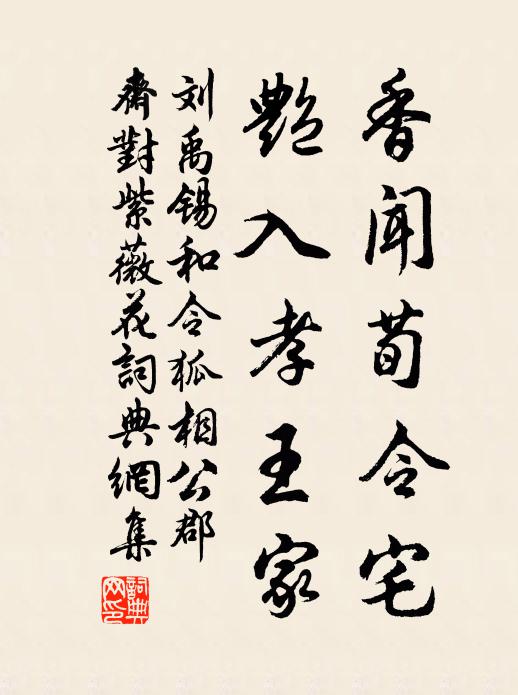 香闻荀令宅
艳入孝王家
刘禹锡和令狐相公郡
斋對紫薇花詞典網集
詞典网印